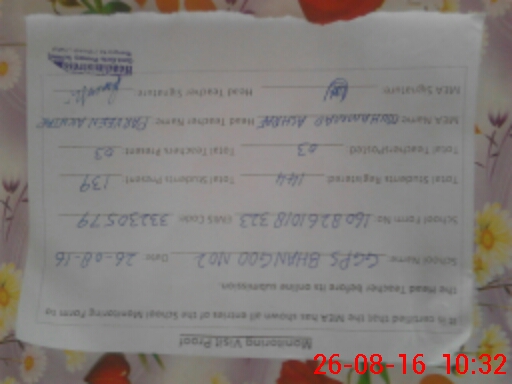 Monitoring Visit Proof
It is certified that the MEA has shown all entries of the School Monitoring Form to
the Head Teacher before its online submission.
School Name GGPS BHANGOO NO2 Date 26-08-16
School Form No 1608261018323 EMIS Code: 33230579
Total Students Registered 144 Total Students Present 139
Total Teachers Posted 03 Total Teachers Present 03
MEA Name MUHAMMAD ASHRAF Head Teacher Name PARVEEN AKHTAR
MEA Signature Head Teacher Signature
Headmistress
26-08-16 10:32